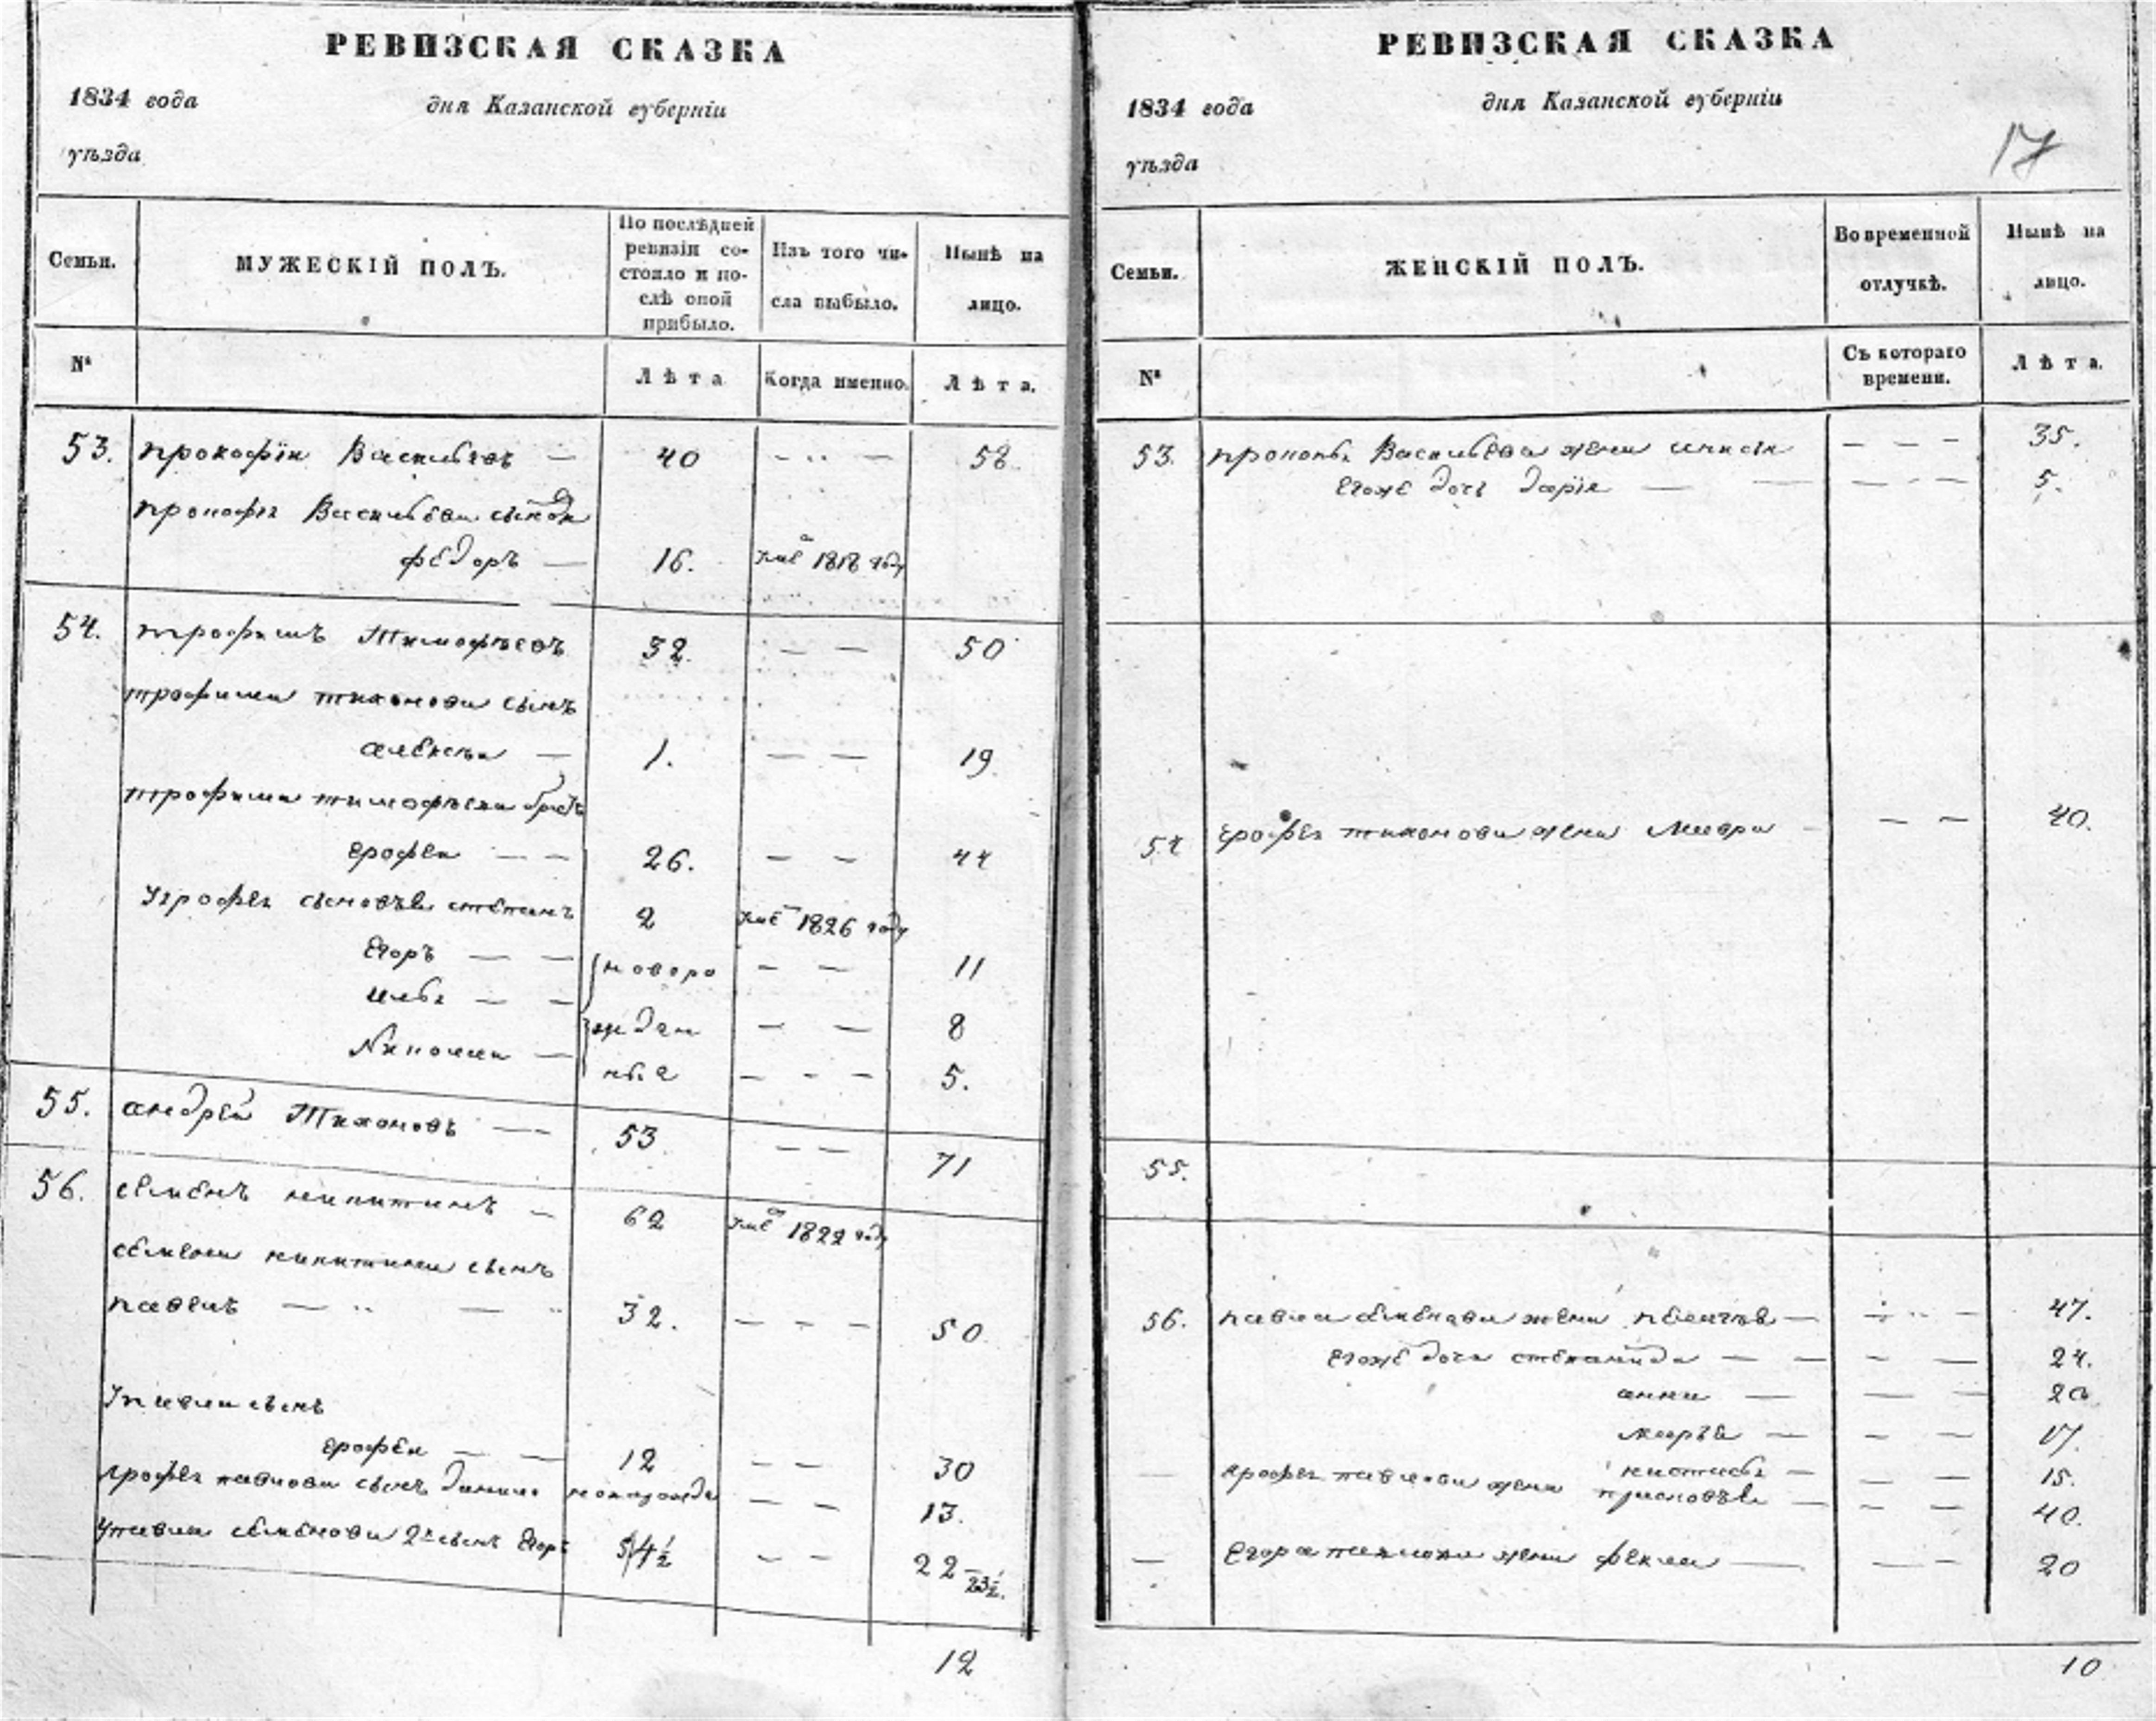 РЕВИЗСКАЯ СКАЗКА
1834 года дня Казанской губерніи
уѣзда
Семьи. МУЖЕСКІЙ ПОЛЪ. По послѣдней ревизіи состояло и послѣ оной прибыло. Изъ того числа выбыло. Нынѣ на лицо.
№ Лѣта Когда именно. Лѣта.
53. прокофѣи Васильевъ — 40 - - - 58
прокофья Васильева сынъ
федоръ — 16. 1818 году
54. трофимъ Тимофѣевъ 32. — — 50
трофима тихонова сынъ
алексѣи — 1. — — 19
трофима тимофѣева братъ
ерофеи — — 26. — — 44
сыновья степанъ 2 1826 году
Егоръ — — новоро — — 11
илья — — жден — — 8
ные — - - 5.
55. андрей Тихоновъ — 53 — — 71
56. семенъ никитинъ — 62 1822 году
семена никитина сынъ
павелъ — — 32. — — — 50
У павла сынъ
ерофеи — — 12 — — 30
павлова сынъ данило — — 13.
У павла семенова 2й сынъ Егоръ 4½ — — 22 23½.
12
РЕВИЗСКАЯ СКАЗКА
1834 года дня Казанской губерніи
уѣзда
17
Семьи. ЖЕНСКІЙ ПОЛЪ. Во временной отлучкѣ. Нынѣ на лицо.
№ Съ котораго времени. Лѣта.
53. Васильева жена — — — 35.
Егоже дочь дарія — — — - - - 5.
54 ерофея тихонова жена Мавра — — — 40.
55.
56. павла семенова жена — — 47.
егоже дочи степанида — — — — 24.
анна — — — 20
марья — — — 17.
настасья — — — 15.
— павлова жена — — — 40.
— Егора павлова жена фекла — — — 20
10